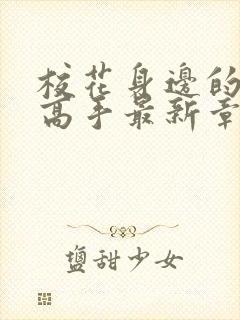 校花身边的
高手最新章
盐甜少女